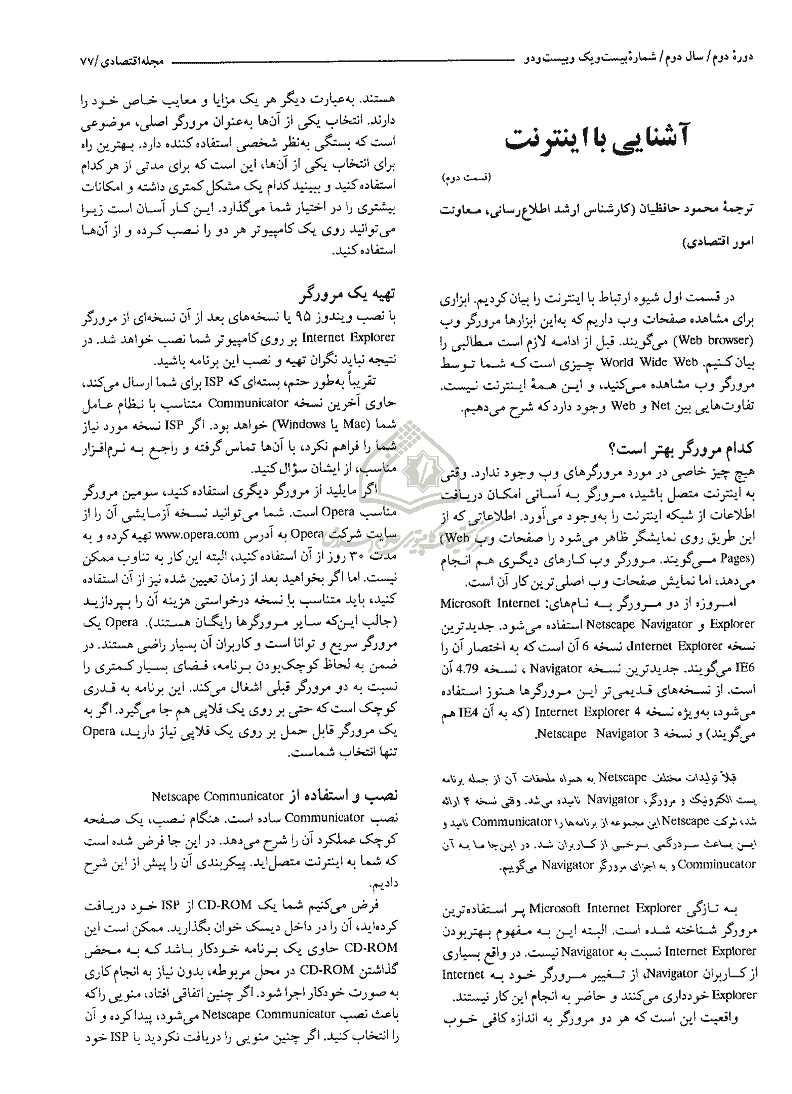 دورهٔ دوم/ سال دوم/ شمارهٔ بیست‌و‌یک و بیست‌و‌دو
مجله اقتصادی/۷۷
آشنایی با اینترنت
(قسمت دوم)
ترجمهٔ محمود حافظیان (کارشناس ارشد اطلاع‌رسانی، معاونت
امور اقتصادی)
در قسمت اول شیوه ارتباط با اینترنت را بیان کردیم. ابزاری
برای مشاهده صفحات وب داریم که به‌این ابزارها مرورگر وب
(Web browser) می‌گویند. قبل از ادامه لازم است مطالبی را
بیان کنیم. World Wide Web چیزی است که شما توسط
مرورگر وب مشاهده می‌کنید، و این همهٔ اینترنت نیست.
تفاوت‌هایی بین Net و Web وجود دارد که شرح می‌دهیم.
کدام مرورگر بهتر است؟
هیچ چیز خاصی در مورد مرورگرهای وب وجود ندارد. وقتی
به اینترنت متصل باشید، مرورگر به آسانی امکان دریافت
اطلاعات از شبکه اینترنت را به‌وجود می‌آورد. اطلاعاتی که از
این طریق روی نمایشگر ظاهر می‌شود را صفحات وب (Web
Pages) می‌گویند. مرورگر وب کارهای دیگری هم انجام
می‌دهد، اما نمایش صفحات وب اصلی‌ترین کار آن است.
امروزه از دو مرورگر به نام‌های: Microsoft Internet
Explorer و Netscape Navigator استفاده می‌شود. جدیدترین
نسخه Internet Explorer، نسخه 6 آن است که به اختصار آن را
IE6 می‌گویند. جدیدترین نسخه Navigator ، نسخه 4.79 آن
است. از نسخه‌های قدیمی‌تر این مرورگرها هنوز استفاده
می‌شود، به‌ویژه نسخه Internet Explorer 4 (که به آن IE4 هم
می‌گویند) و نسخه Netscape Navigator 3.
قبلاً تولیدات مختلف Netscape به همراه ملحقات آن از جمله برنامه
پست الکترونیک و مرورگر، Navigator نامیده می‌شد. وقتی نسخه ۴ ارائه
شد، شرکت Netscape این مجموعه از برنامه‌ها را Communicator نامید و
این باعث سردرگمی برخی از کاربران شد. در این‌جا ما به آن
Comminucator و به اجزای مرورگر Navigator می‌گوییم.
به تازگی Microsoft Internet Explorer پر استفاده‌ترین
مرورگر شناخته شده است. البته این به مفهوم بهتربودن
Internet Explorer نسبت به Navigator نیست. در واقع بسیاری
از کاربران Navigator، از تغییر مرورگر خود به Internet
Explorer خودداری می‌کنند و حاضر به انجام این کار نیستند.
واقعیت این است که هر دو مرورگر به اندازه کافی خوب
هستند. به‌عبارت دیگر هر یک مزایا و معایب خاص خود را
دارند. انتخاب یکی از آن‌ها به‌عنوان مرورگر اصلی، موضوعی
است که بستگی به‌نظر شخصی استفاده کننده دارد. بهترین راه
برای انتخاب یکی از آن‌ها، این است که برای مدتی از هر کدام
استفاده کنید و ببینید کدام یک مشکل کمتری داشته و امکانات
بیشتری را در اختیار شما می‌گذارد. این کار آسان است زیرا
می‌توانید روی یک کامپیوتر هر دو را نصب کرده و از آن‌ها
استفاده کنید.
تهیه یک مرورگر
با نصب ویندوز ۹۵ یا نسخه‌های بعد از آن نسخه‌ای از مرورگر
Internet Explorer بر روی کامپیوتر شما نصب خواهد شد. در
نتیجه نباید نگران تهیه و نصب این برنامه باشید.
تقریباً به‌طور حتم، بسته‌ای که ISP برای شما ارسال می‌کند،
حاوی آخرین نسخه Communicator متناسب با نظام عامل
شما (Mac یا Windows) خواهد بود. اگر ISP نسخه مورد نیاز
شما را فراهم نکرد، با آن‌ها تماس گرفته و راجع به نرم‌افزار
مناسب، از ایشان سؤال کنید.
اگر مایلید از مرورگر دیگری استفاده کنید، سومین مرورگر
مناسب Opera است. شما می‌توانید نسخه آزمایشی آن را از
سایت شرکت Opera به آدرس www.opera.com تهیه کرده و به
مدت ۳۰ روز از آن استفاده کنید، البته این کار به تناوب ممکن
نیست. اما اگر بخواهید بعد از زمان تعیین شده نیز از آن استفاده
کنید، باید متناسب با نسخه درخواستی هزینه آن را بپردازید
(جالب این‌که سایر مرورگرها رایگان هستند). Opera یک
مرورگر سریع و توانا است و کاربران آن بسیار راضی هستند. در
ضمن به لحاظ کوچک‌بودن برنامه، فضای بسیار کمتری را
نسبت به دو مرورگر قبلی اشغال می‌کند. این برنامه به قدری
کوچک است که حتی بر روی یک فلاپی هم جا می‌گیرد. اگر به
یک مرورگر قابل حمل بر روی یک فلاپی نیاز دارید، Opera
تنها انتخاب شماست.
نصب و استفاده از Netscape Communicator
نصب Communicator ساده است. هنگام نصب، یک صفحه
کوچک عملکرد آن را شرح می‌دهد. در این جا فرض شده است
که شما به اینترنت متصل‌اید. پیکربندی آن را پیش از این شرح
دادیم.
فرض می‌کنیم شما یک CD-ROM از ISP خود دریافت
کرده‌اید، آن را در داخل دیسک خوان بگذارید. ممکن است این
CD-ROM حاوی یک برنامه خودکار باشد که به محض
گذاشتن CD-ROM در محل مربوطه، بدون نیاز به انجام کاری
به صورت خودکار اجرا شود. اگر چنین اتفاقی افتاد، منویی را که
باعث نصب Netscape Communicator می‌شود، پیدا کرده و آن
را انتخاب کنید. اگر چنین منویی را دریافت نکردید با ISP خود